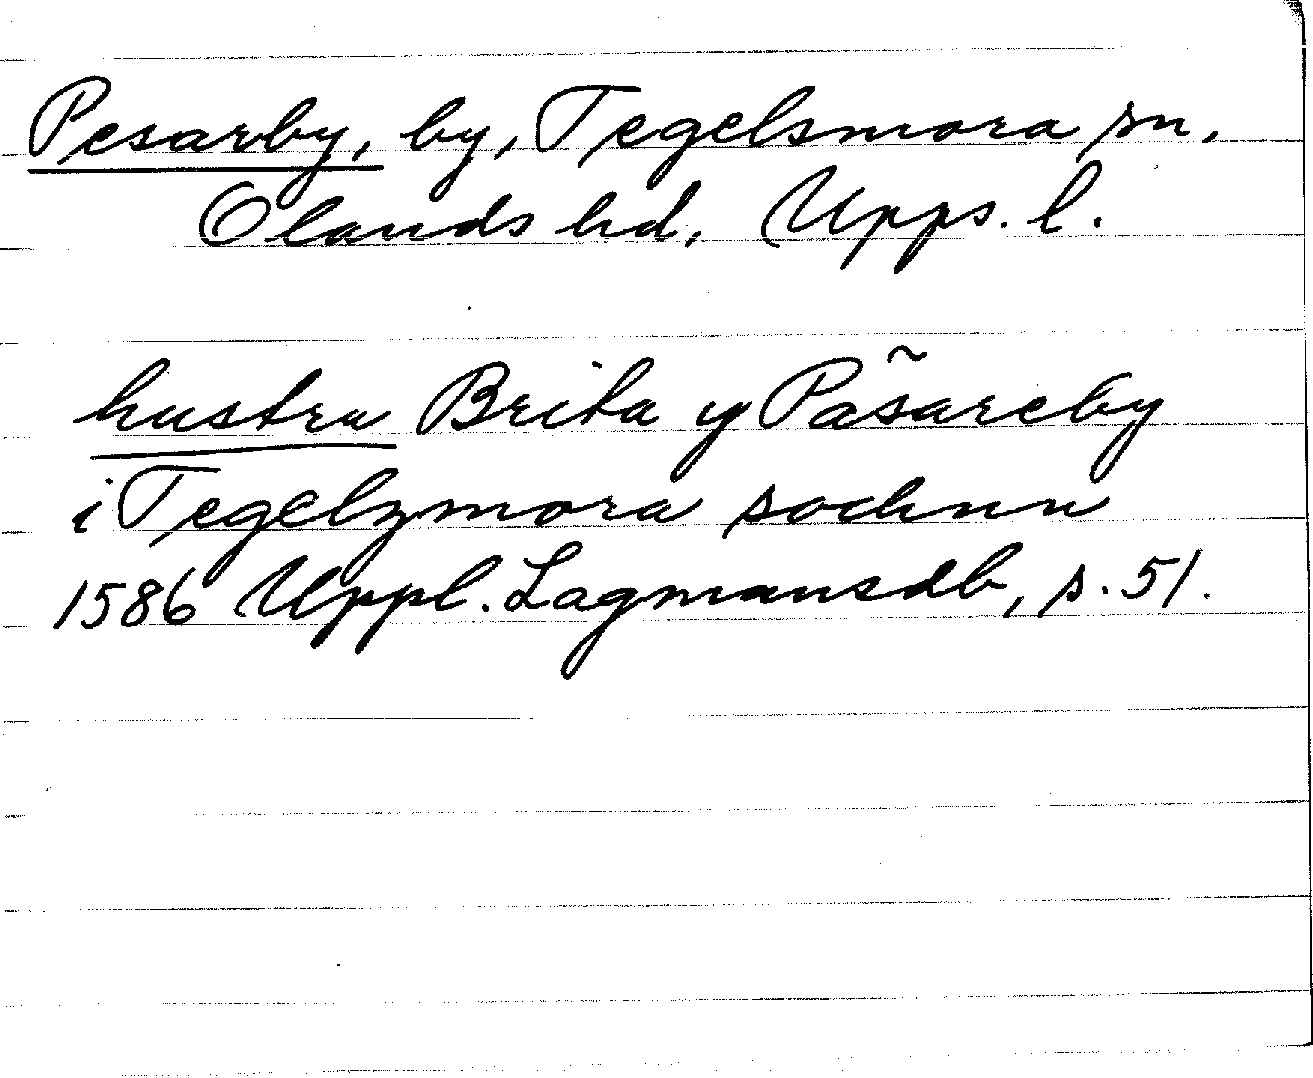 Pesarby, by, Tegelsmora sn,
Olands hd, Upps. l.
hustru Brita y Päsareby
i Tegelzmora sochnn
1586 Uppl. Lagmansdb, s. 51.